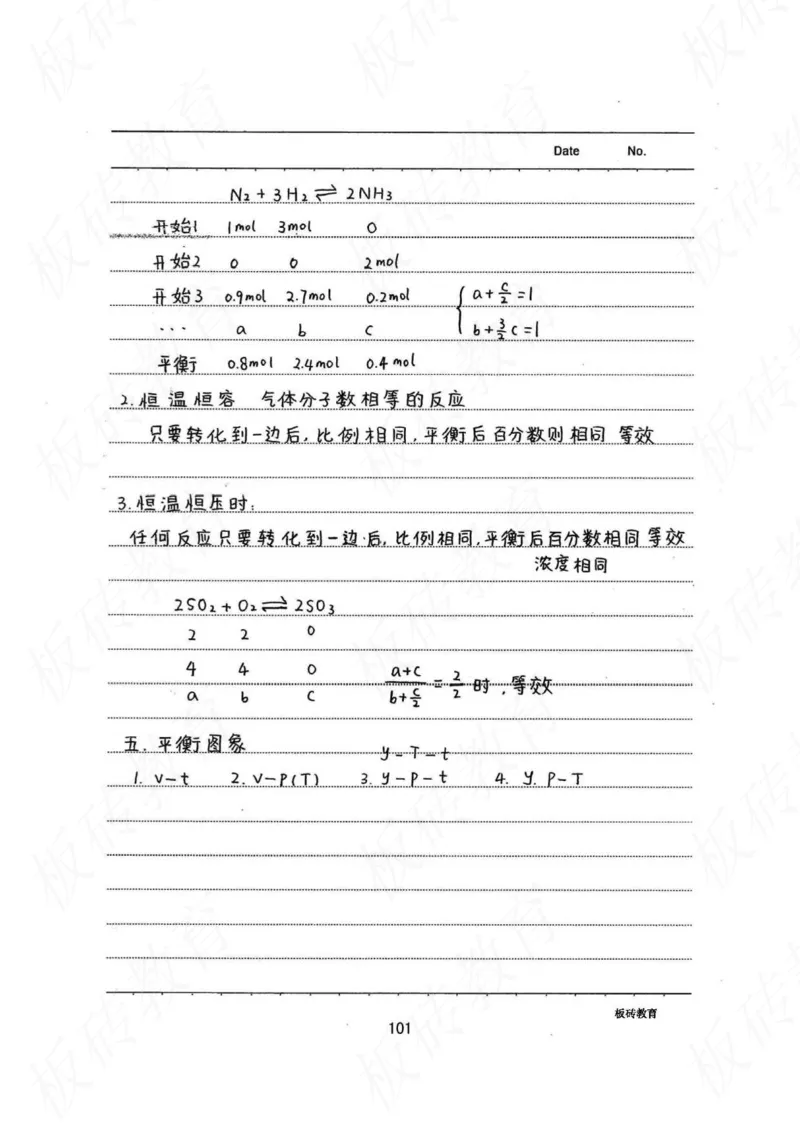 Date No.
N₂ + 3H₂ ⇌ 2NH₃
开始1 1mol 3mol 0
开始2 0 0 2mol
开始3 0.9mol 2.7mol 0.2mol { a+c/2=1
... a b c b+3/2c=1
平衡 0.8mol 2.4mol 0.4mol
2.恒温恒容 气体分子数相等的反应
只要转化到一边后,比例相同,平衡后百分数则相同 等效
3.恒温恒压时:
任何反应只要转化到一边后,比例相同,平衡后百分数相同 等效
浓度相同
2SO₂ + O₂ ⇌ 2SO₃
2 2 0
4 4 0
a b c (a+c)/(b+c/2) = 2/2 时,等效
五.平衡图象
y-T-t
1. v-t 2. v-P(T) 3. y-p-t 4. y. P-T
板砖教育
101
板砖教育